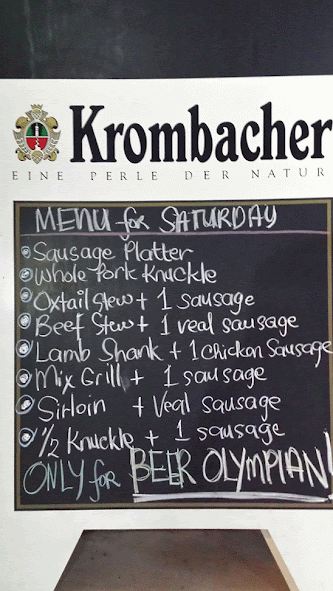 Krombacher
EINE PERLE DER NATUR
MENU for SATURDAY
Sausage Platter
Whole Pork Knuckle
Oxtail Stew + 1 sausage
Beef Stew + 1 veal sausage
Lamb Shank + 1 Chicken Sausage
Mix Grill + 1 sausage
Sirloin + Veal sausage
1/2 Knuckle + 1 sausage
ONLY for BEER OLYMPIAN!